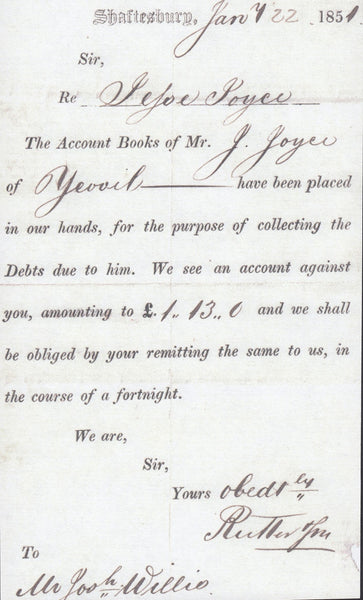 Shaftesbury, Jany 22 1851
Sir,
Re Jesse Joyce
The Account Books of Mr. J. Joyce
of Yeovil have been placed
in our hands, for the purpose of collecting the
Debts due to him. We see an account against
you, amounting to £ 1.. 13.. 0 and we shall
be obliged by your remitting the same to us, in
the course of a fortnight.
We are,
Sir,
Yours obedtly
Rutter &
To
Mr Josh Willis